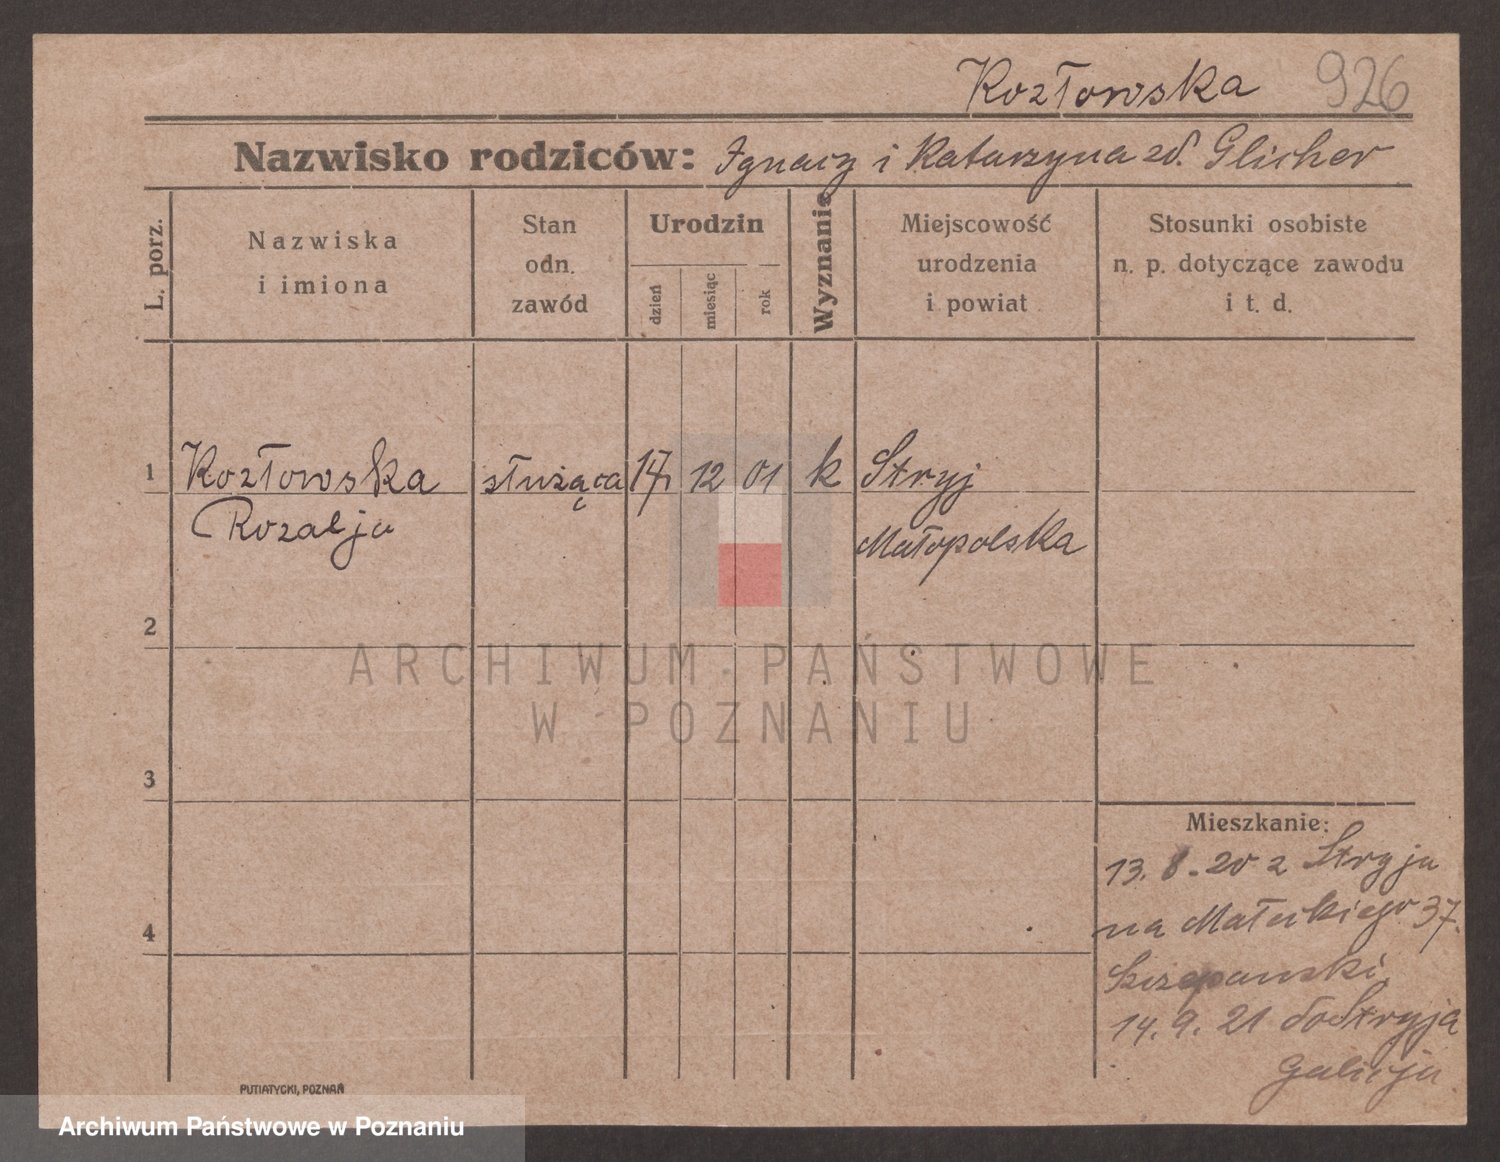 Kozłowska 926
Nazwisko rodziców: Ignacy i Katarzyna zd. Glicher
L. porz.
Nazwiska
i imiona
Stan
odn.
zawód
Urodzin
dzień
miesiąc
rok
Wyznanie
Miejscowość
urodzenia
i powiat
Stosunki osobiste
n. p. dotyczące zawodu
i t. d.
1 Kozłowska służąca 14 12 01 k Stryj
Rozalja Małopolska
2
ARCHIWUM PAŃSTWOWE
W POZNANIU
3
Mieszkanie:
13. 8. 20 z Stryja
na Małeckiego 37.
Szczepanski
4
14. 9. 21 do Stryja
Galicja
PUTIATYCKI, POZNAŃ
Archiwum Państwowe w Poznaniu